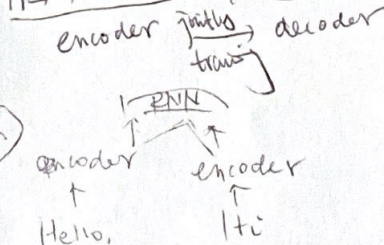 encoder jointly decoder
train
RNN
encoder encoder
Hello, Hi